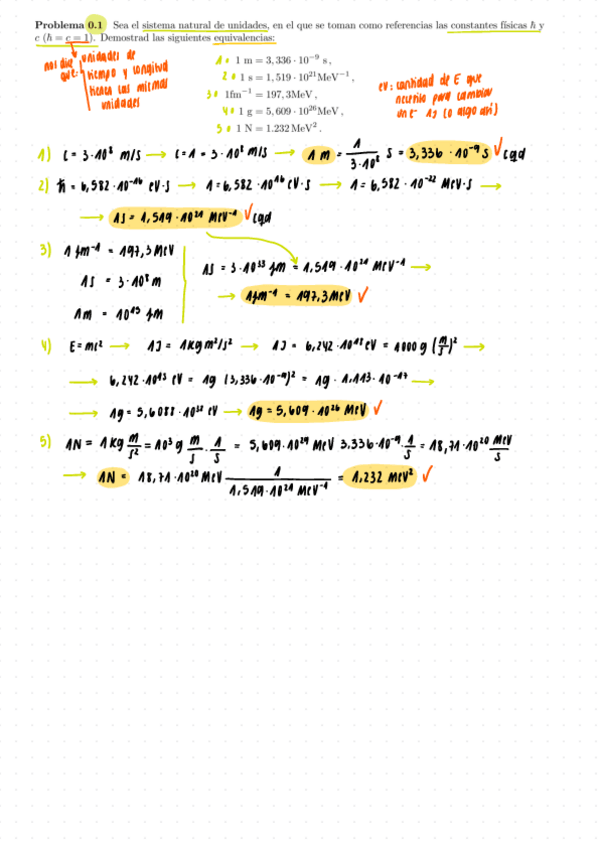 Problema 0.1 Sea el sistema natural de unidades, en el que se toman como referencias las constantes físicas ℏ y
c (ℏ = c = 1). Demostrad las siguientes equivalencias:
nos dice que: unidades de
tiempo y longitud
tienen las mismas
unidades
1• 1 m = 3,336 · 10⁻⁹ s ,
2• 1 s = 1,519 · 10²¹ MeV⁻¹ ,
3• 1fm⁻¹ = 197,3MeV ,
4• 1 g = 5,609 · 10²⁶ MeV ,
5• 1 N = 1.232 MeV² .
eV: cantidad de E que
necesito para cambiar
un e⁻ 1J (o algo así)
1) c = 3·10⁸ m/s → c = 1 = 3·10⁸ m/s → 1 m = 1/(3·10⁸) s = 3,336 · 10⁻⁹ s ✓ cqd
2) ℏ = 6,582 · 10⁻¹⁶ eV·s → 1 = 6,582 · 10⁻¹⁶ eV·s → 1 = 6,582 · 10⁻²² MeV·s →
→ 1s = 1,519 · 10²¹ MeV⁻¹ ✓ cqd
3) 1 fm⁻¹ = 197,3 MeV
1s = 3·10⁸ m
1m = 10¹⁵ fm
1s = 3·10²³ fm = 1,519 · 10²¹ MeV⁻¹ →
→ 1fm⁻¹ = 197,3 MeV ✓
4) E = mc² → 1J = 1kg m²/s² → 1J = 6,242 · 10¹⁸ eV = 1000 g (m/s)² →
→ 6,242 · 10¹⁵ eV = 1g (3,336 · 10⁻⁹)² = 1g · 1,113 · 10⁻¹⁷ →
→ 1g = 5,6088 · 10³² eV → 1g = 5,609 · 10²⁶ MeV ✓
5) 1N = 1 kg m/s² = 10³ g m/s · 1/s = 5,609 · 10²⁹ MeV 3,336 · 10⁻⁹ · 1/s = 18,71 · 10²⁰ MeV/s
→ 1N = 18,71 · 10²⁰ MeV 1/(1,519 · 10²¹ MeV⁻¹) = 1,232 MeV² ✓